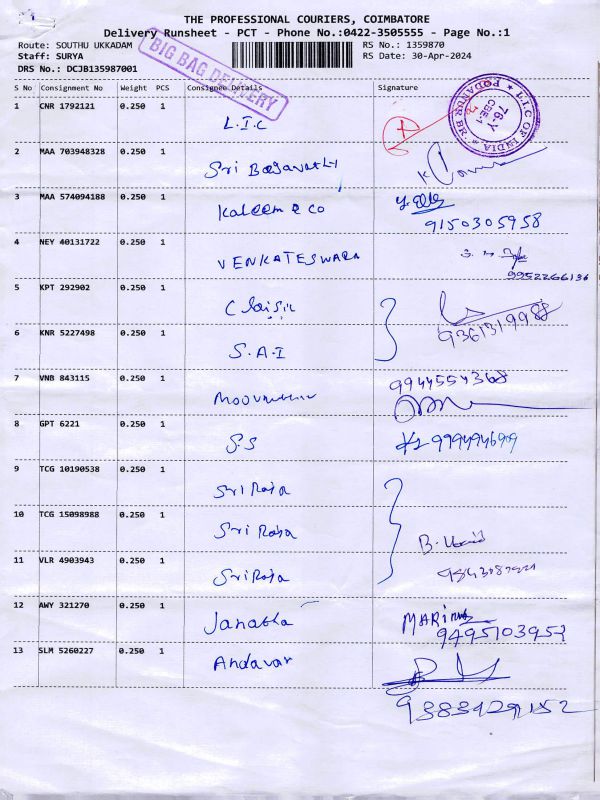 THE PROFESSIONAL COURIERS, COIMBATORE
Delivery Runsheet - PCT - Phone No.:0422-3505555 - Page No.:1
Route: SOUTHU UKKADAM RS No.: 1359870
Staff: SURYA RS Date: 30-Apr-2024
DRS No.: DCJB135987001
BIG BAG DELIVERY
S No Consignment No Weight PCS Consignee Details Signature
1 CNR 1792121 0.250 1 L.I.C
L.I.C OF INDIA
76-Y
CBE-1
PODANUR BR.
2 MAA 703948328 0.250 1 Sri Bagavathi
3 MAA 574094188 0.250 1 Kaleem & Co
9150305958
4 NEY 40131722 0.250 1 VENKATESWARA
9952266136
5 KPT 292902 0.250 1
9361319988
6 KNR 5227498 0.250 1 S.A.I
7 VNB 843115 0.250 1
9944554368
8 GPT 6221 0.250 1 S.S
9 TCG 10190538 0.250 1 Sri Raja
10 TCG 15098988 0.250 1 Sri Raja
11 VLR 4903943 0.250 1 Sri Raja
12 AWY 321270 0.250 1 Janatha
9495103953
13 SLM 5260227 0.250 1 Andavar
9383929152